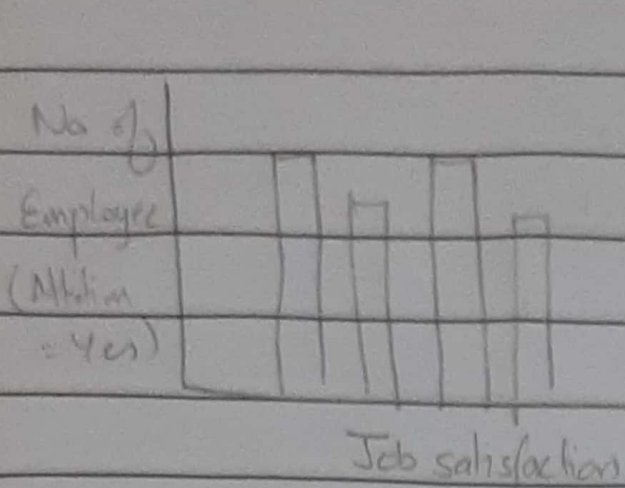 No of
Employee
(Attrition
= Yes)
Job satisfaction